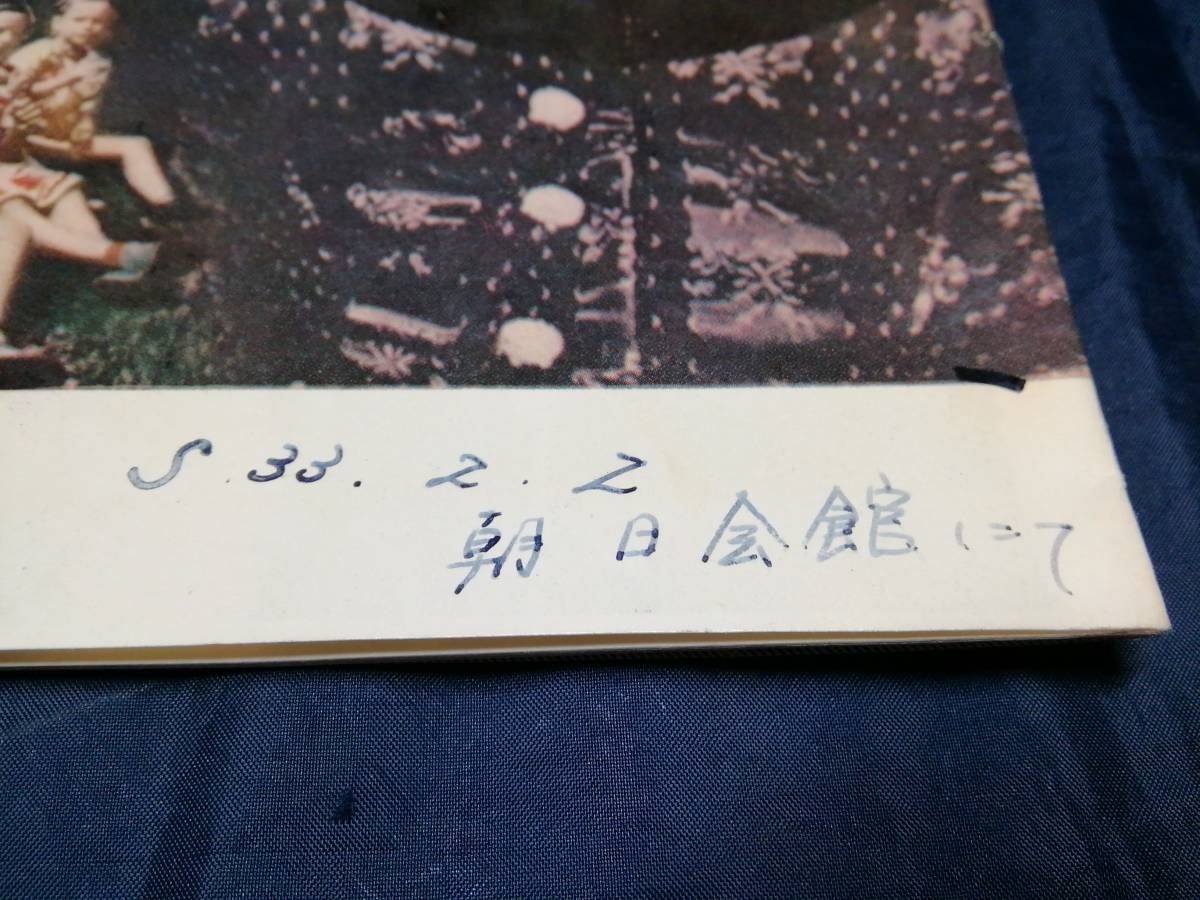 S.33.2.2
朝日会館にて